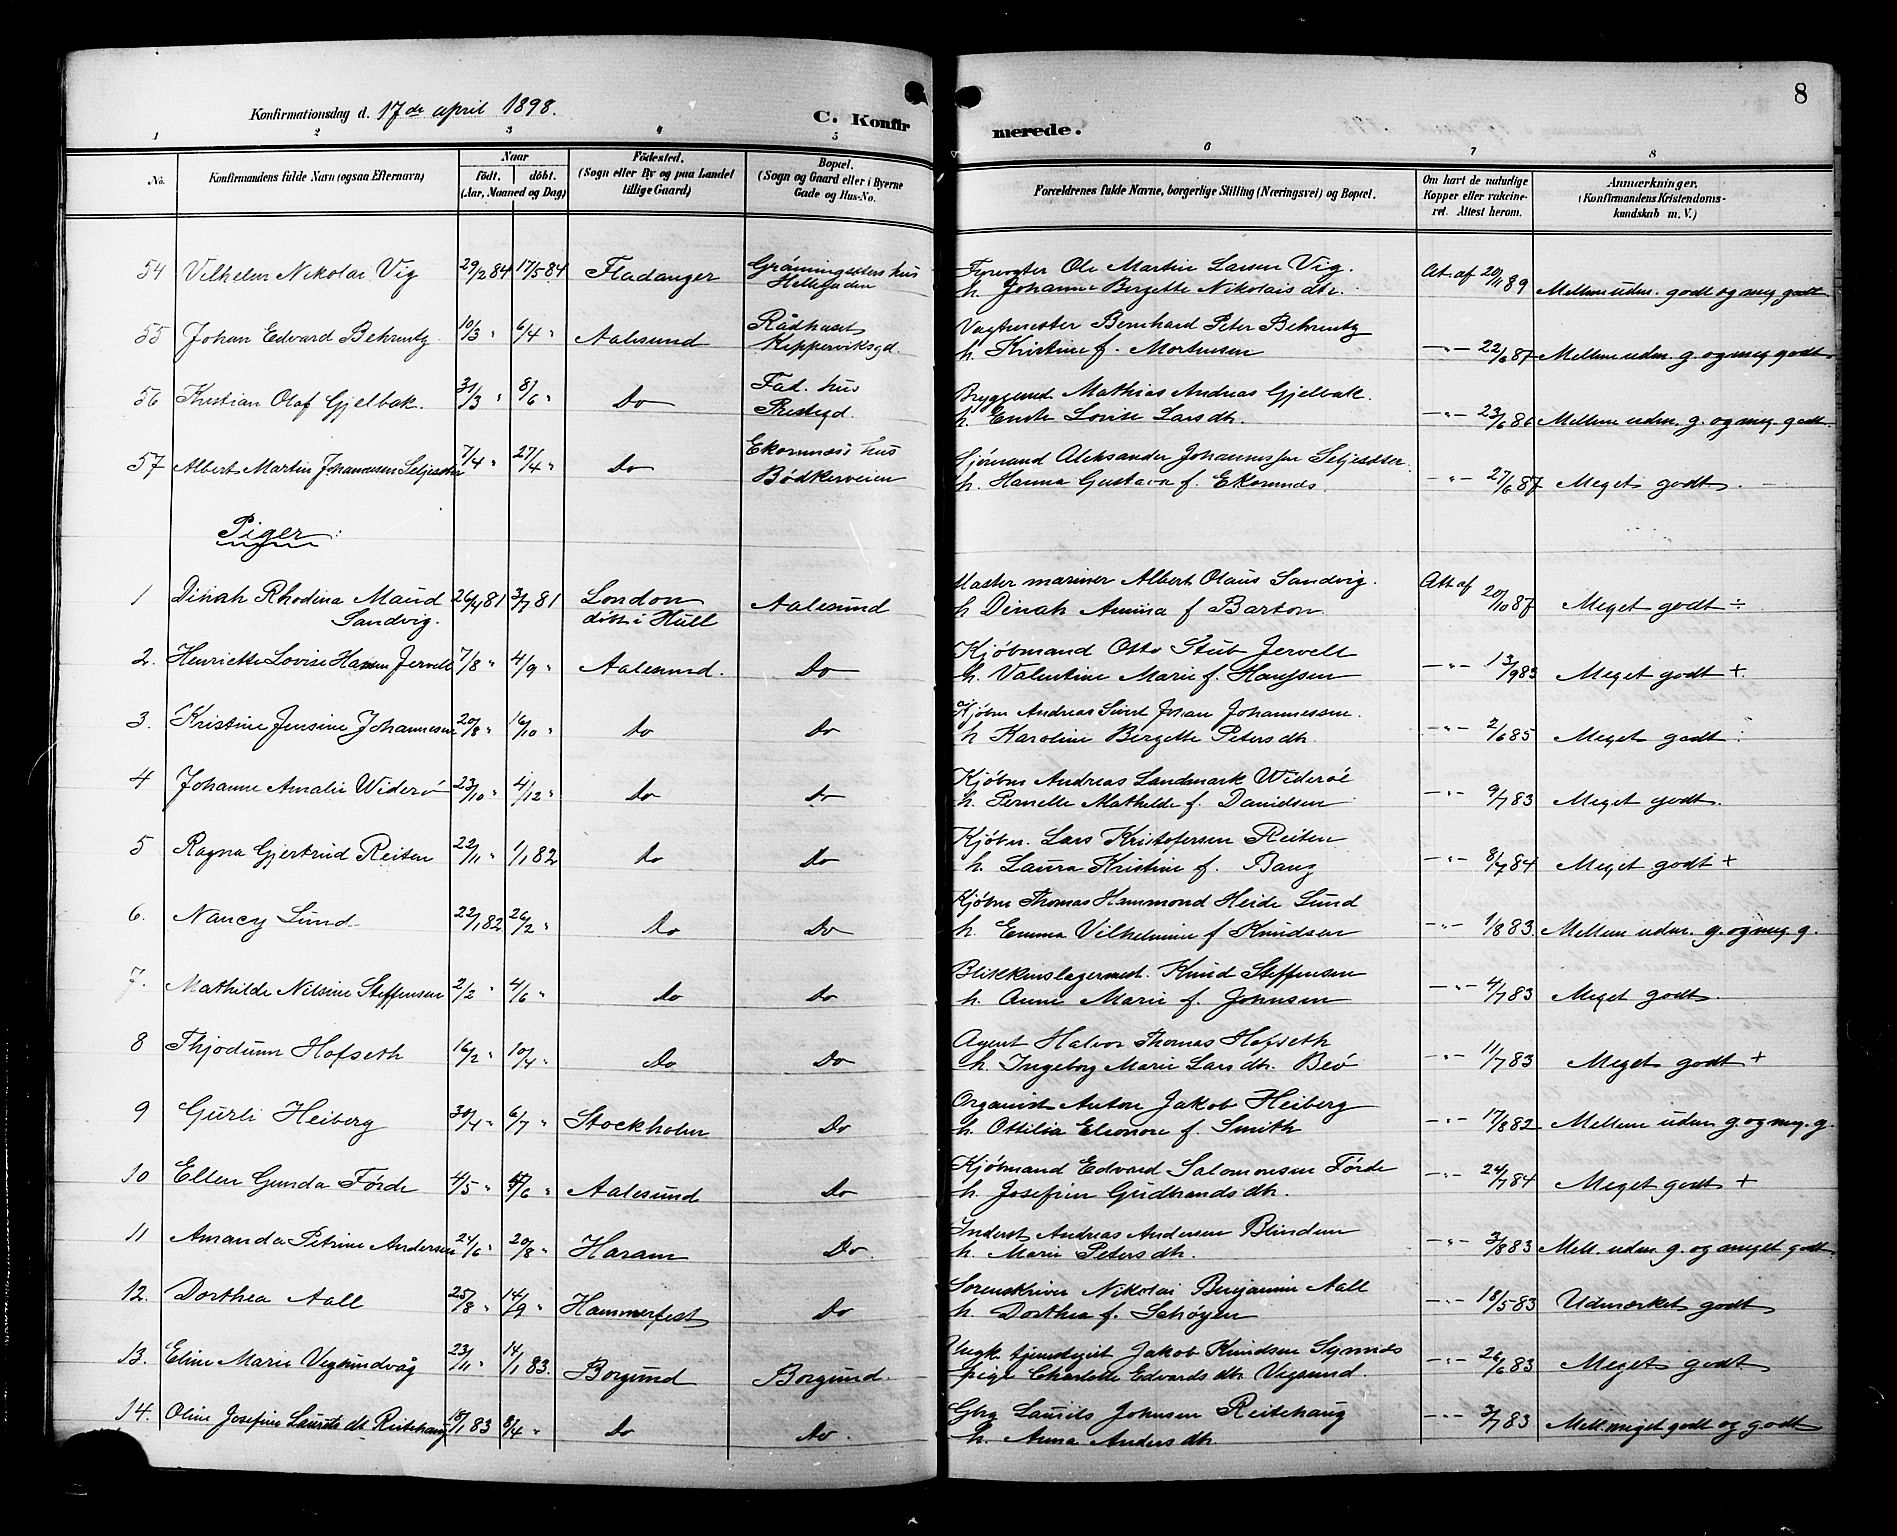 8
Konfirmationsdag d. 17de april 1898.
C. Konfir merede.
1 2 3 4 5 6 7 8
No. Konfirmandens fulde Navn (ogsaa Efternavn) Naar født. døbt. (Aar, Maaned og Dag) Fødested. (Sogn eller By og paa Landet tillige Gaard) Bopæl. (Sogn og Gaard eller i Byerne Gade og Hus-No. Forældrenes fulde Navne, borgerlige Stilling (Næringsvei) og Bopæl. Om havt de naturlige Kopper eller vakcineret. Attest herom. Anmærkninger. (Konfirmandens Kristendomskundskab m. V.)
54 Vilhelm Nikolai Vig 29/2 84 17/5 84 Fladanger Gröningsæters hus Hellegaden Fyrvogter Ole Martin Larsen Vig.
h. Johanne Bergette Nikolaisdtr. At. af 20/11 89 Mellem udm. godt og meg. godt
55 Johan Edvard Behrentz 10/3 " 6/4 " Aalesund Rådhuset Kipperviksgd. Vagtmester Bernhard Peter Behrentz
h. Kristine f. Mortensen -"- 22/6 87 Mellem udm. g. og meg. godt
56 Kristian Olaf Gjelbak. 31/3 " 8/6 " Do Fad. hus Prestegd. Bryggemd Mathias Andreas Gjelbak.
h. Lovise Larsdtr. -"- 23/6 86 Mellem udm. g. og meg. godt.
57 Albert Martin Johannesen Seljesæter 7/4 " 27/4 " Do Ekornnæs' hus Bödkerveien Sjömand Aleksander Johannessen Seljesæter.
h. Hanna Gustava f. Ekornnæs. -"- 27/6 87 Meget godt.
Piger:
1 Dinah Rhodina Maud Sandvig. 26/4 81 3/7 81 London döbt i Hull Aalesund Master mariner Albert Olaus Sandvig.
h Dinah Amina f Barton Att af 20/10 87 Meget godt ÷
2. Henriette Lovise Hansen Jervell 7/8 " 4/9 " Aalesund. Do Kjöbmand Otto Stub Jervell
h. Valentine Marie f. Hanssen -"- 13/9 83 Meget godt +.
3. Kristine Jensine Johannesen 20/8 " 16/10 " Do Do Kjöbm Andreas Sivert Johan Johannessen.
h Karoline Bergette Petersdtr. -"- 2/6 85 Meget godt :
4 Johanne Amalie Widerö 23/10 " 4/12 " Do Do Kjöbm Andreas Landmark Wideröe
h. Pernelle Mathilde f. Davidsen -"- 9/7 83 Meget godt.
5 Ragna Gjertrud Reiten 22/11 " 1/1 82 Do Do Kjöbm. Lars Kristofersen Reiten
h. Laura Kristine f. Bang -"- 8/7 84 Meget godt +
6. Nancy Lund 22/1 82 26/2 " Do Do Kjöbm Thomas Hammond Heide Lund
h. Emma Vilhelmine f Knudsen -"- 1/8 83. Mellem udm. g. og meg. g.
7. Mathilde Nilsine Steffensen 2/2 " 4/6 " Do Do Blikkenslagermest. Knud Steffensen
h. Anne Marie f. Johnsen -"- 4/7 83 Meget godt.
8 Thjodunn Hofseth 16/2 " 10/4 " Do Do Agent Halvor Thomas Hofseth
h. Ingeborg Marie Larsdtr. Beö -"- 11/7 83 Meget godt +
9 Gurli Heiberg 30/4 " 6/7 " Stockholm Do Organist Anton Jakob Heiberg
h. Ottilia Eleonore f. Smith -"- 17/8 82 Mellem udm. g. og meg. g.
10 Ellen Gunda Förde 4/5 " /6 " Aalesund Do Kjöbmand Edvard Salomonsen Förde
h. Josefine Gudbrandsdtr. -"- 24/7 84 Meget godt +
11 Amanda Petrine Andersen 24/6 " 20/8 " Haram Do. Inderst Andreas Andersen Blindem
h. Marie Petersdtr. -"- 3/8 83 Mell. udm. g. og meget godt.
12. Dorthea Aall 25/8 " 14/9 " Hammerfest Do Sorenskriver Nikolai Benjamin Aall
h. Dorthea f. Schöyen -"- 18/5 83 Udmærket godt
13. Eline Marie Vegsundvåg 23/11 " 14/1 83. Borgund Borgund. Ungk. Jakob Knudsen Synnes
pige Charlotte Edvardsdtr Vegsund. -"- 26/6 83 Meget godt
14. Oline Josefine Lauritsdtr Reitehaug 18/1 83 8/4 " Do Do. Gbr Laurits Johnsen Reitehaug
h. Anna Andersdtr -"- 3/7 83 Mell. meget godt og godt